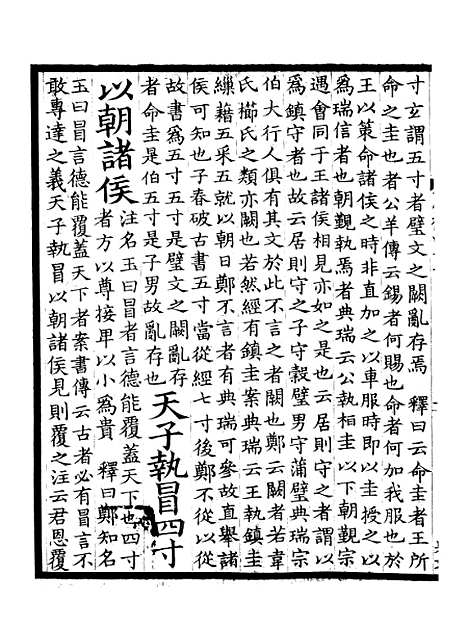 寸玄謂五寸者璧文之闕亂存焉　釋曰云命圭者王所
命之圭也者公羊傳云錫者何賜也命者何加我服也於
王以策命諸侯之時非直加之以車服時即以圭授之以
為瑞信者也朝覲執焉者典瑞云公執桓圭以下朝覲宗
遇會同于王諸侯相見亦如之是也云居則守之者謂以
為鎮守者也故云居則守之子守穀璧男守蒲璧典瑞宗
伯大行人俱有其文於此不言之者闕也鄭云闕者若韋
氏櫛氏之類亦闕也若然經有鎮圭案典瑞云王執鎮圭
繅藉五采五就以朝日鄭不言者有典瑞可參故直舉諸
侯可知也子春破古書五寸當從經七寸後鄭不從以從
故書為五寸五寸是璧文之闕亂存
者命圭是伯五寸是子男故亂存也天子執冒四寸
以朝諸侯注名玉曰冒者言德能覆蓋天下也四寸
者方以尊接卑以小為貴　釋曰鄭知名
玉曰冒言德能覆蓋天下者案書傳云古者必有冒言不
敢專達之義天子執冒以朝諸侯見則覆之注云君恩覆